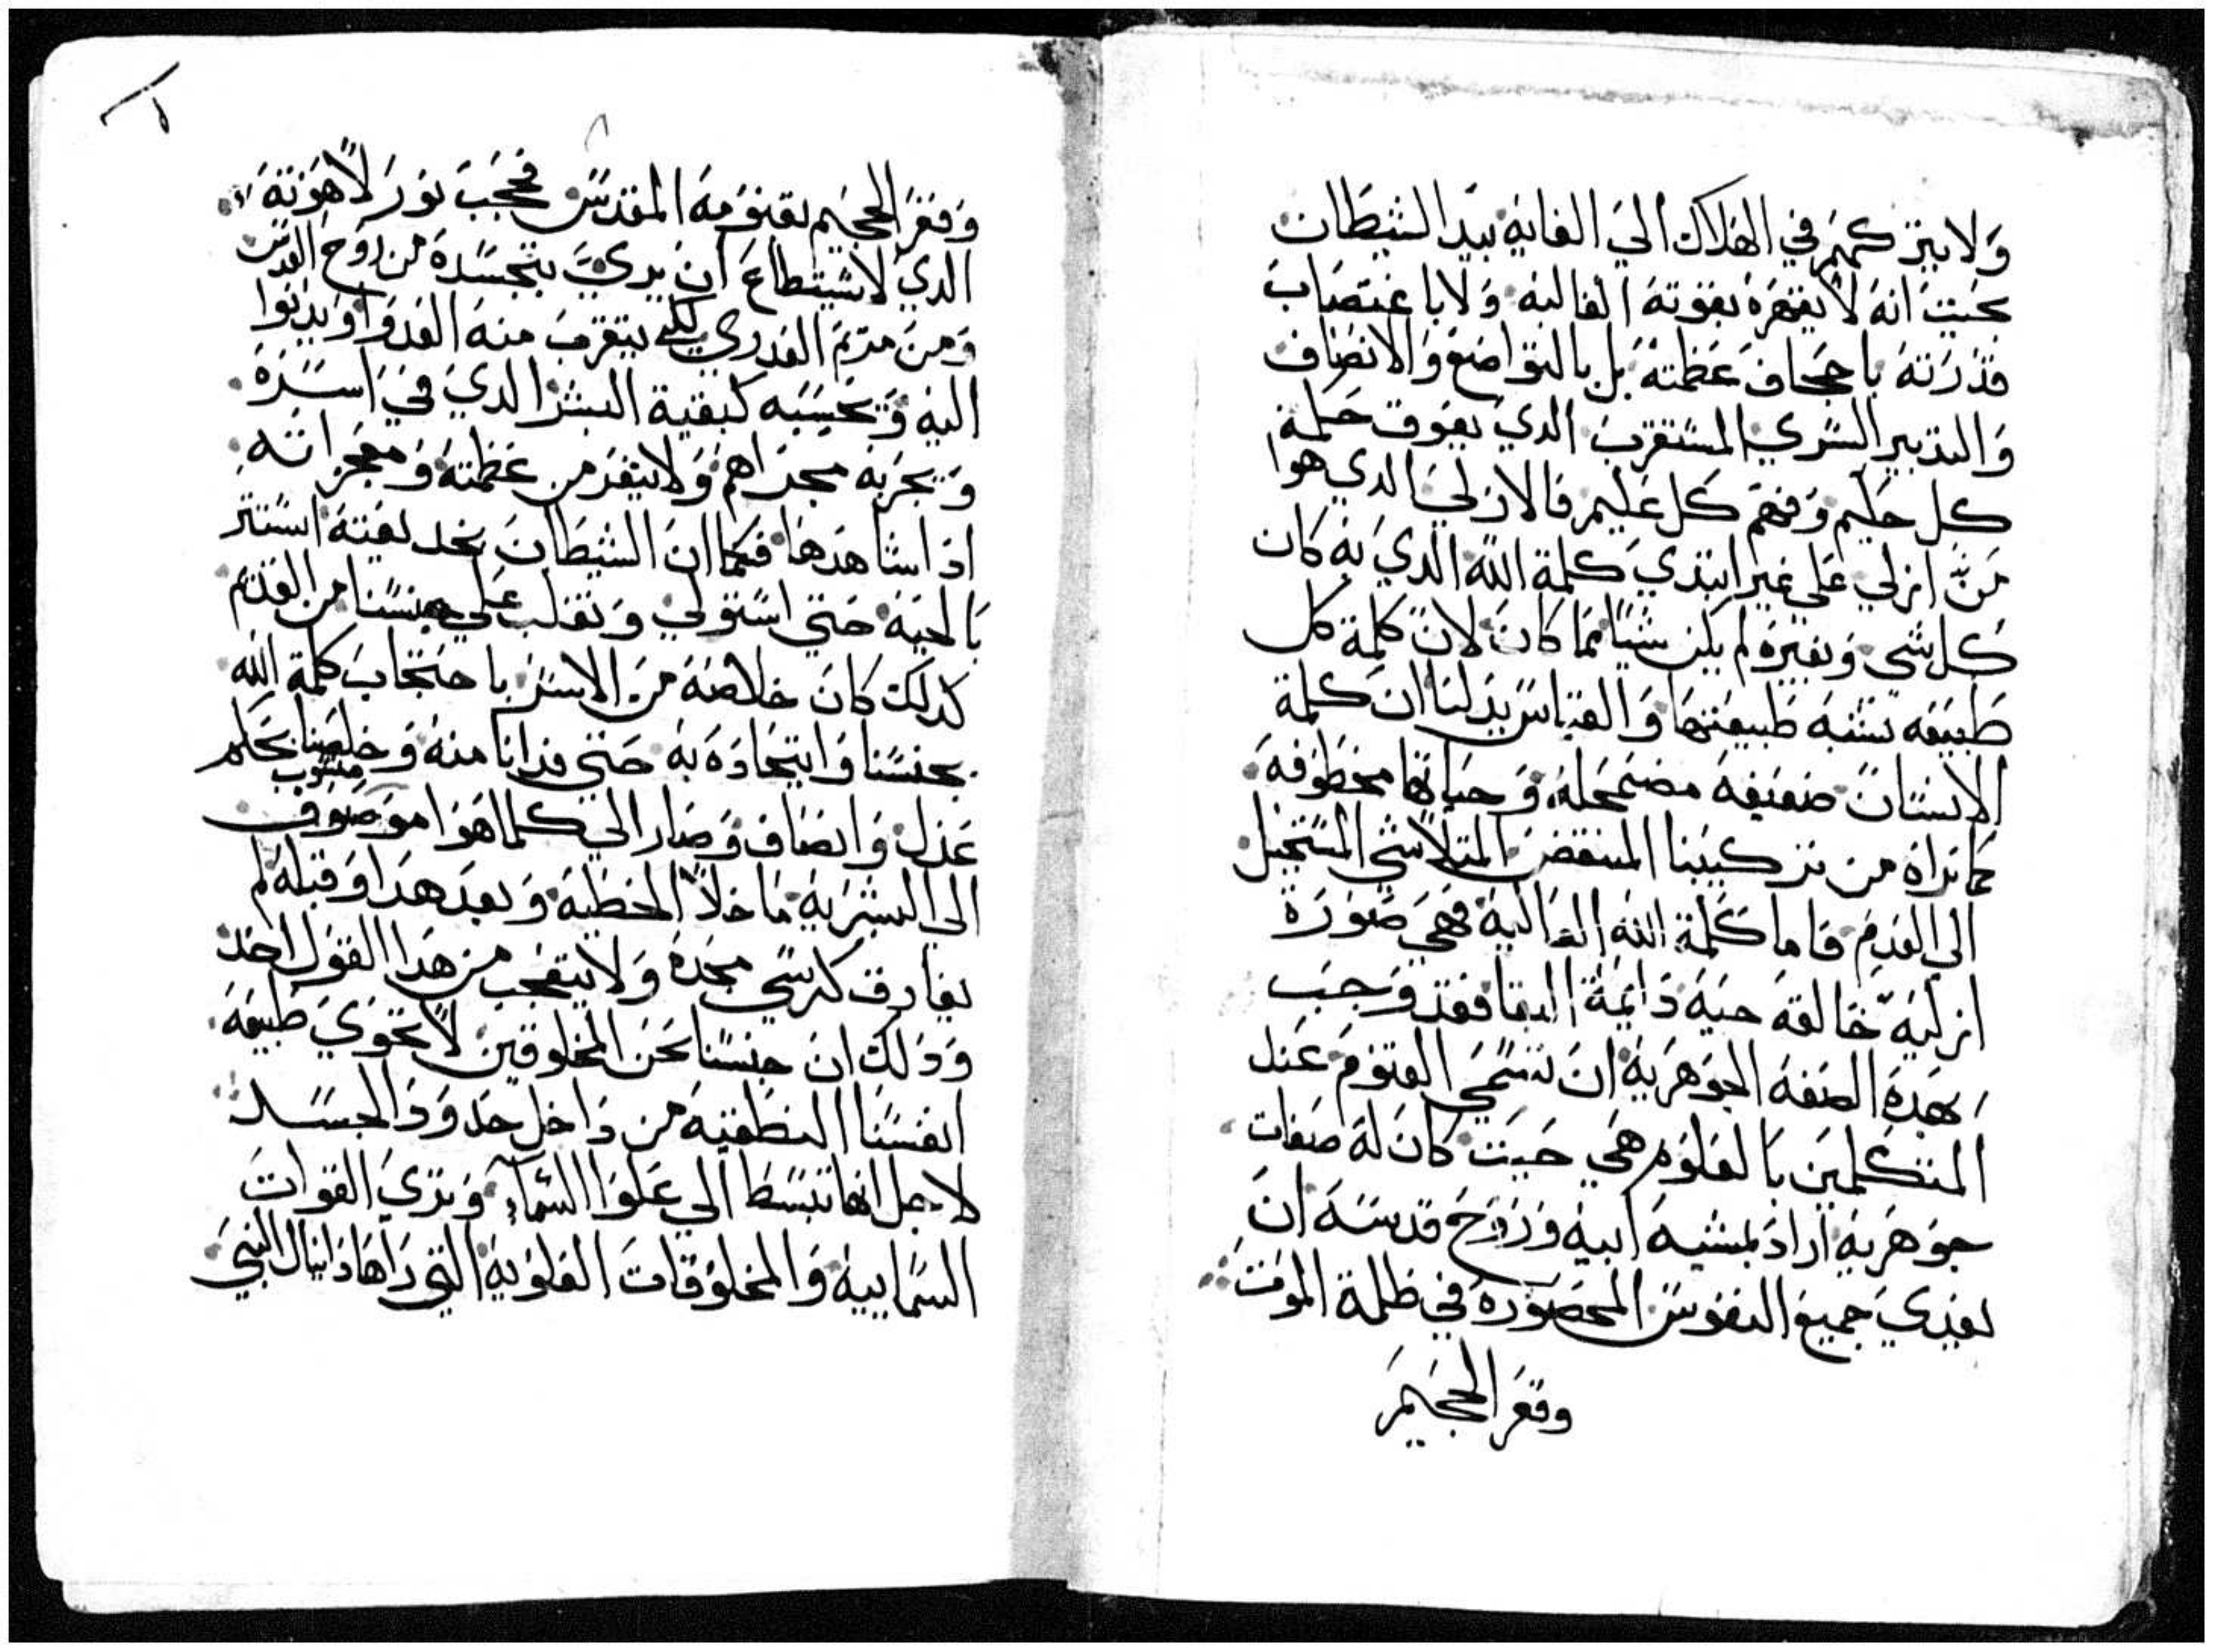 ولا يتركهم في الهلاك الي الغايه بيد الشيطان
بحيث انه لا يقهره بقوته الغالبه ولا باغتصاب
قدرته باجحاف عظمته بل بالتواضع والانصاف
والتدبير السري المستغرب الدي يفوق حلمه
كل حليم وفهم كل عليم فالازلي الدي هوا
من ازلي علي غير ابتدي كلمة الله الدي به كان
كل شي وبغيره لم يكن شيا مما كان لان كلمة كل
طبيعه تشبه طبيعتها والقياس يدلنا ان كلمة
الانسان ضعيفه مضمحله وحياتها مخطوفه
كما نراه من تركيبنا المنتقض المتلاشي المستحيل
الي العدم فاما كلمة الله العاليه فهي صورة
ازليه خالقه حيه دايمة البقا فقد وجب
بهده الصفه الجوهريه ان تسمي القنوم عند
المتكلمين بالعلوم هي حيت كان له صفات
جوهريه اراد بمشيه ابيه وروح قدسه ان
يفدي جميع النفوس المحصوره في ظلمة الموت
وقعر الجحيم
وقعر الجحيم بقنومه المقدس فحجب نور لاهوته
الدي لا يستطاع ان يري بتجسده من روح القدس
ومن مريم العدري لكي يتقرب منه العدوا ويدنوا
اليه ويحسبه كبقية البشر الدي في اسره
ويجريه مجراهم ولا ينفر من عظمته ومعجزاته
ادا شاهدها فكما ان الشيطان بخديعته استتر
بالحيه حتي استولي وتغلب علي جنسنا من القدم
كدلك كان خلاصه من الاسر باحتجاب كلمة الله
بجنسنا واتحاده به حتي فدانا منه وخلصنا بحكم
عدل وانصاف وصار الي كلما هوا موصوف منسوب
الي البشريه ما خلا الخطيه وبعد هدا وقبله لم
يفارق كرسي مجده ولا يتعجب من هدا القول احد
ودلك ان جنسنا نحن المخلوقين لا تحوي طبيعة
انفسنا النطقيه من داخل حدود الجسد
لاجل انها تنبسط الي علوا السماء وتري القوات
السماييه والمخلوقات العلويه التي راها دانيال النبي